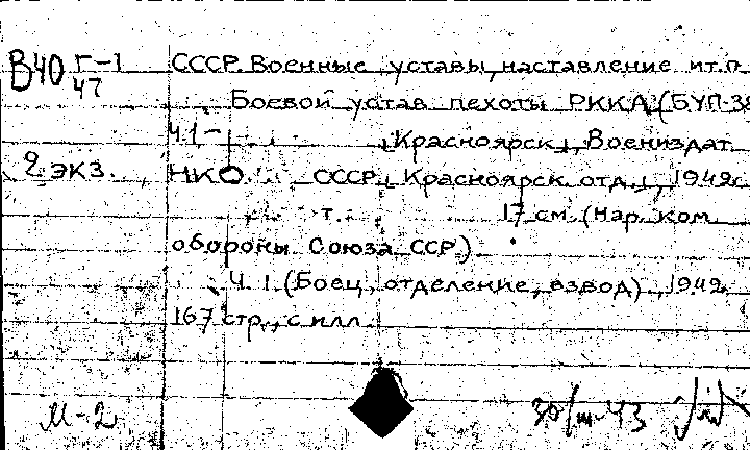 В40 Г-1 СССР. Военные уставы, наставление и т.п.
47 Боевой устав пехоты РККА (БУП-38
Ч1- Красноярск, Воениздат
2 экз. НКО СССР, Красноярск. отд., 1942г.
т. 17 см (Нар. ком
обороны Союза ССР)
Ч. 1. (Боец, отделение, взвод), 1942.
167 стр., с илл.
М-2 30/III-43